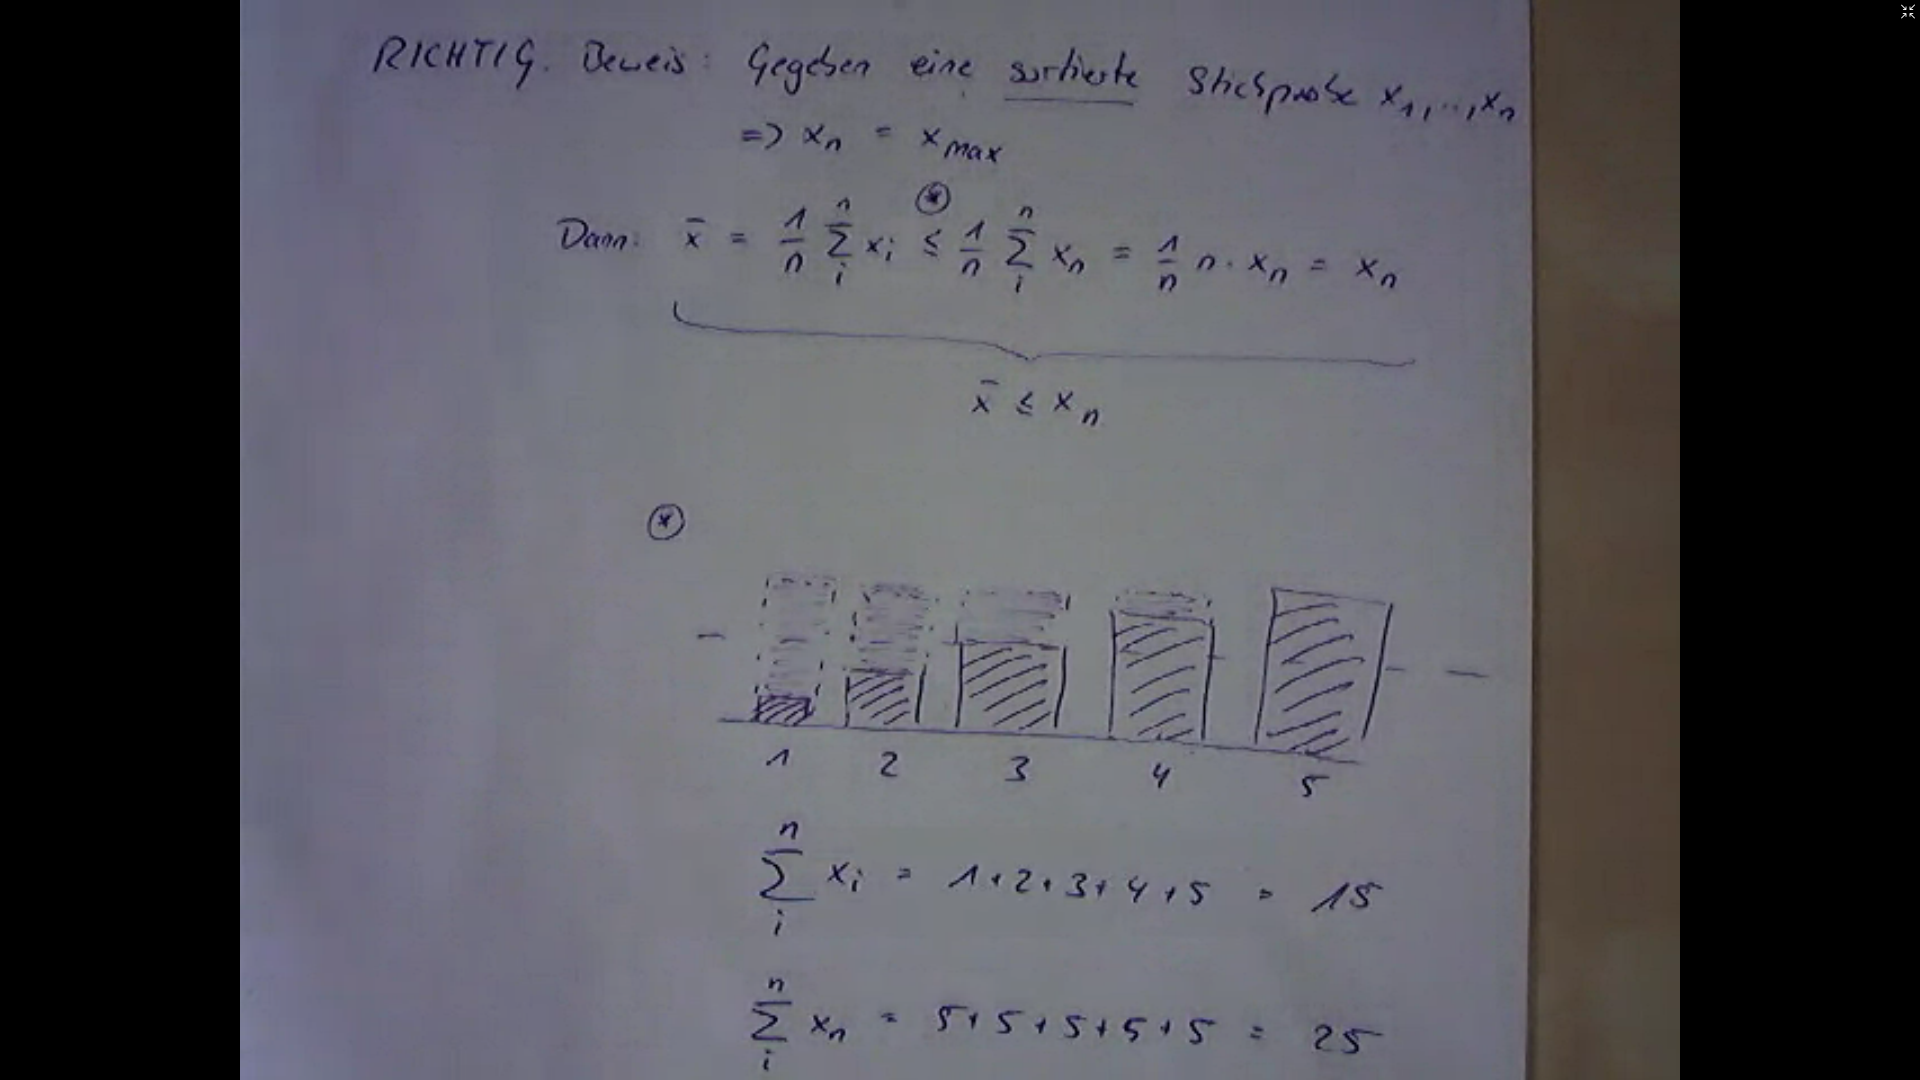 RICHTIG. Beweis: Gegeben eine sortierte Stichprobe x₁,...,xₙ
=> xₙ = x_max
(*)
Dann: x̄ = 1/n ∑ᵢⁿ xᵢ ≤ 1/n ∑ᵢⁿ xₙ = 1/n n · xₙ = xₙ
x̄ ≤ xₙ
(*)
1 2 3 4 5
∑ᵢⁿ xᵢ = 1+2+3+4+5 = 15
∑ᵢⁿ xₙ = 5+5+5+5+5 = 25